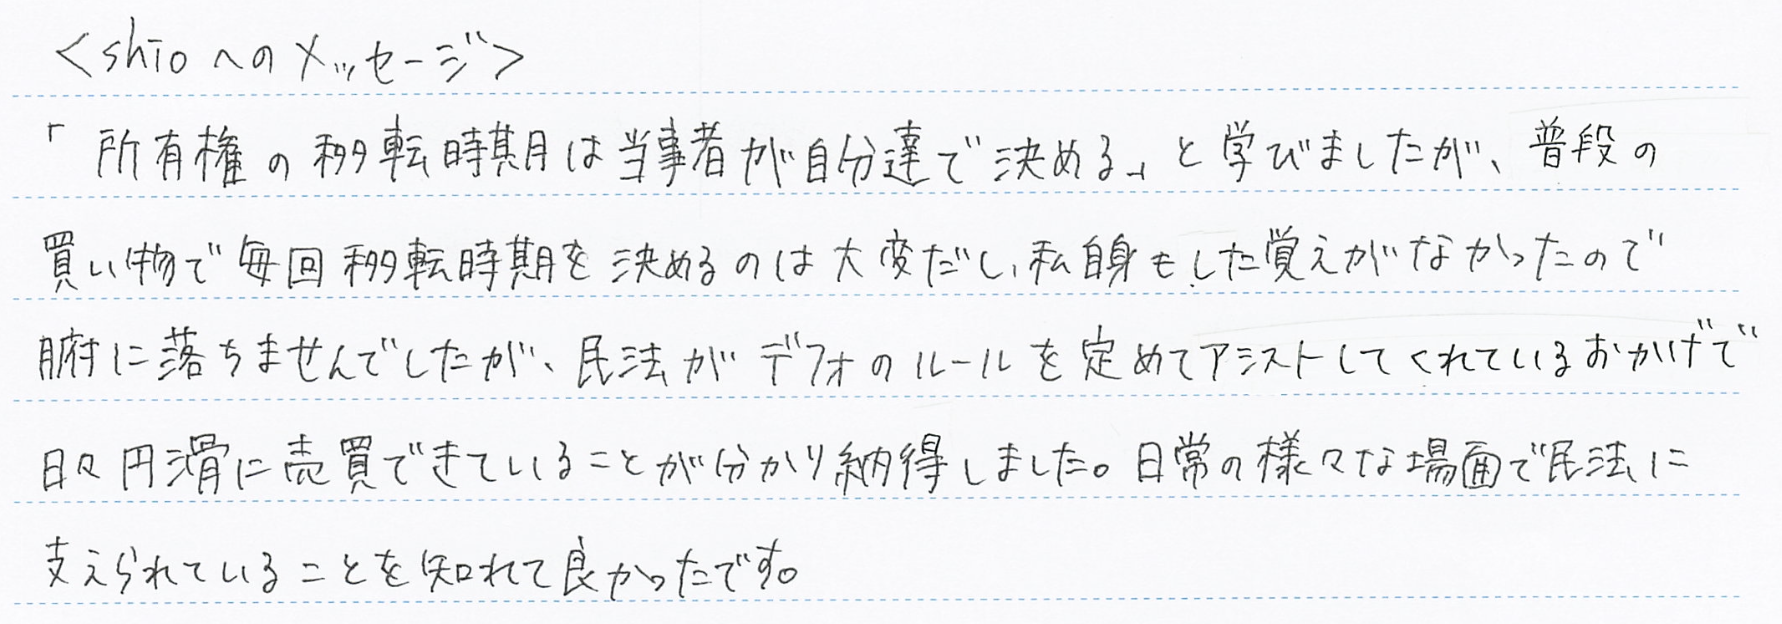 <shioへのメッセージ>
「所有権の移転時期は当事者が自分達で決める」と学びましたが、普段の
買い物で毎回移転時期を決めるのは大変だし、私自身もした覚えがなかったので
腑に落ちませんでしたが、民法がデフォのルールを定めてアシストしてくれているおかげで
日々円滑に売買できていることが分かり納得しました。日常の様々な場面で民法に
支えられていることを知れて良かったです。